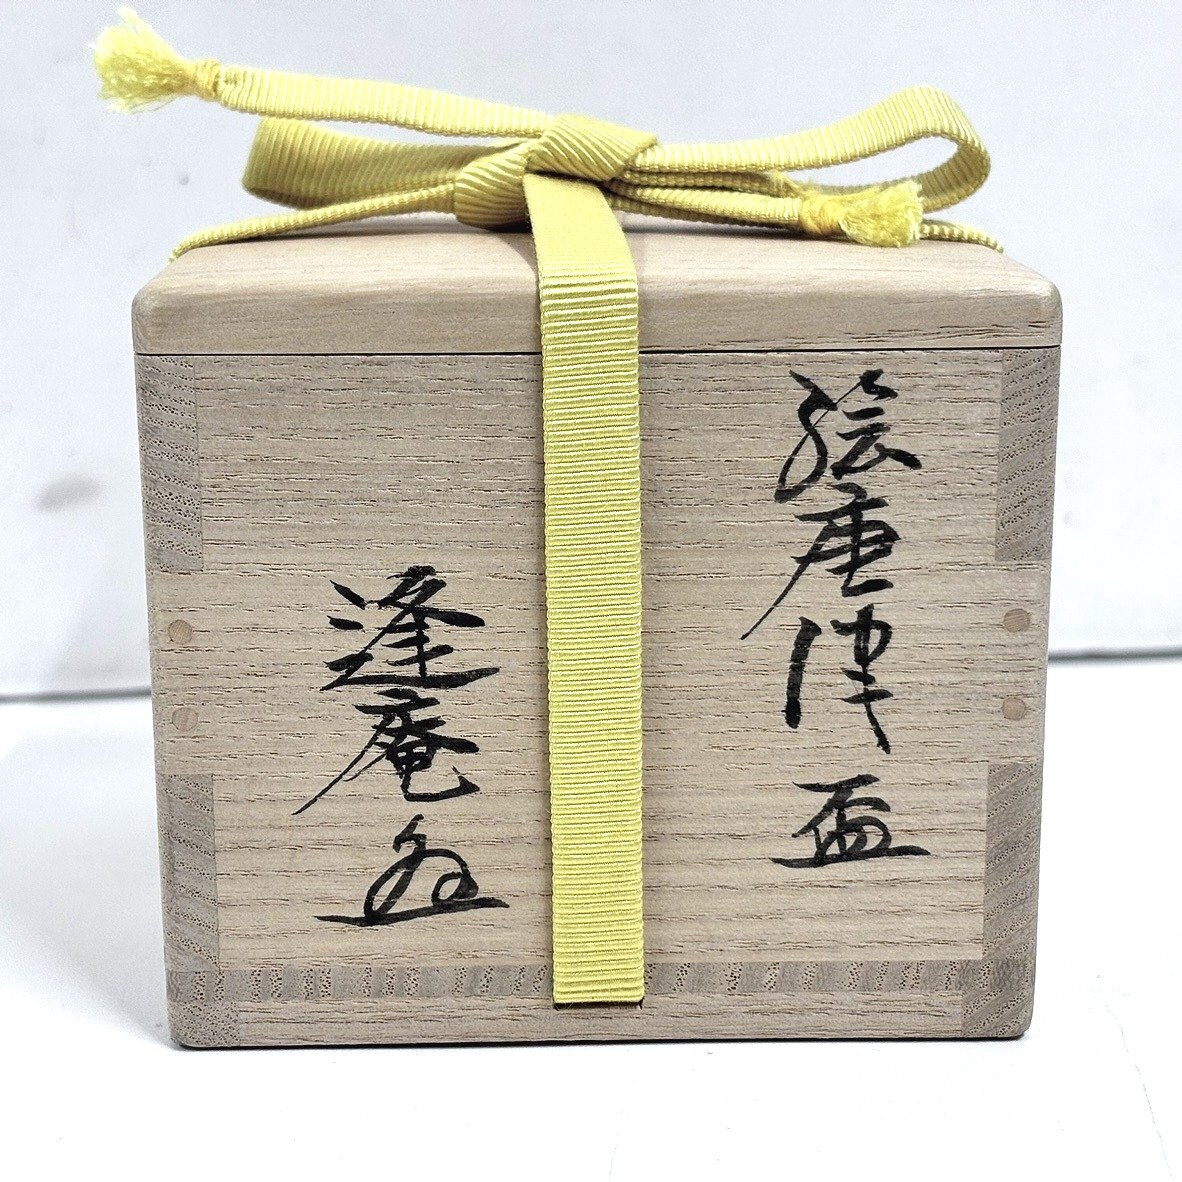 絵唐津盃
逢庵